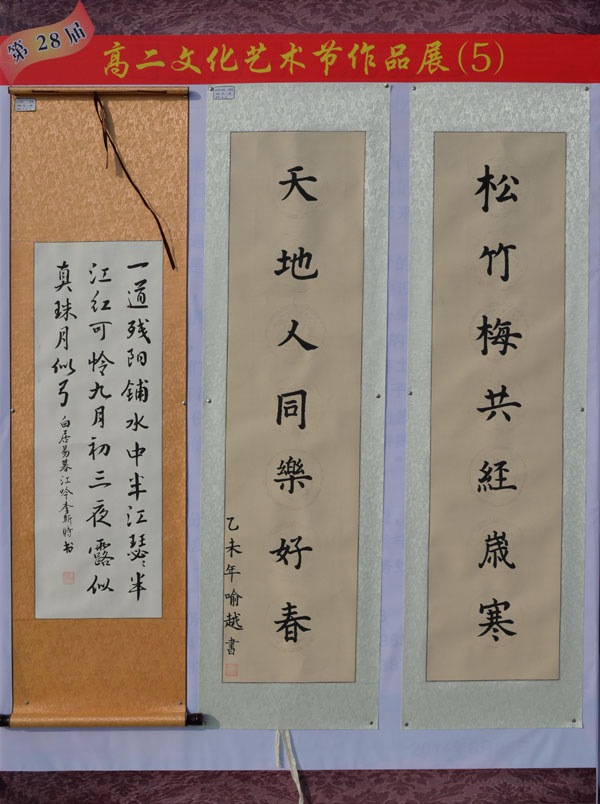 第28届
高二文化艺术节作品展(5)
松竹梅共經歲寒
天地人同樂好春
乙未年喻越書
一道残阳铺水中半江瑟瑟半
江红可怜九月初三夜露似
真珠月似弓
白居易暮江吟李斯时书